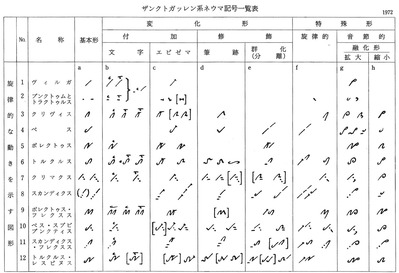 ザンクトガッレン系ネウマ記号一覧表
1972
変 化 形
特 殊 形
No. 名 称 基本形 付 加 修 飾 旋律的 音節的
融化形
文 字 エピゼマ 筆 跡 群 化(分 離) 拡 大 縮 小
a b c d e f g h
旋律的な動きを示す図形
1 ヴィルガ
2 プンクトゥムとトラクトゥルス
3 クリヴィス
4 ペス
5 ポレクトゥス
6 トルクルス
7 クリマクス
8 スカンディクス
9 ポレクトゥス・フレクスス
10 ペス・スブビプンクティス
11 スカンディクス・フレクスス
12 トルクルス・レスピヌス